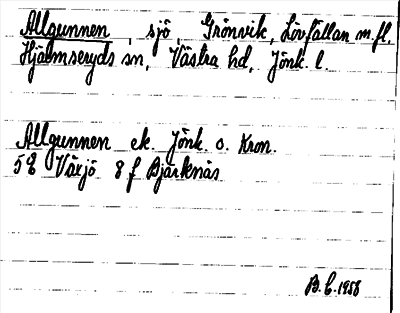 Allgunnen, sjö, Grönvik, Lövfällan m.fl.
Hjälmseryds sn, Västra hd, Jönk. l.
Allgunnen ek. Jönk. o. Kron.
5E Växjö 8 f Bjärknäs
B. E. 1958